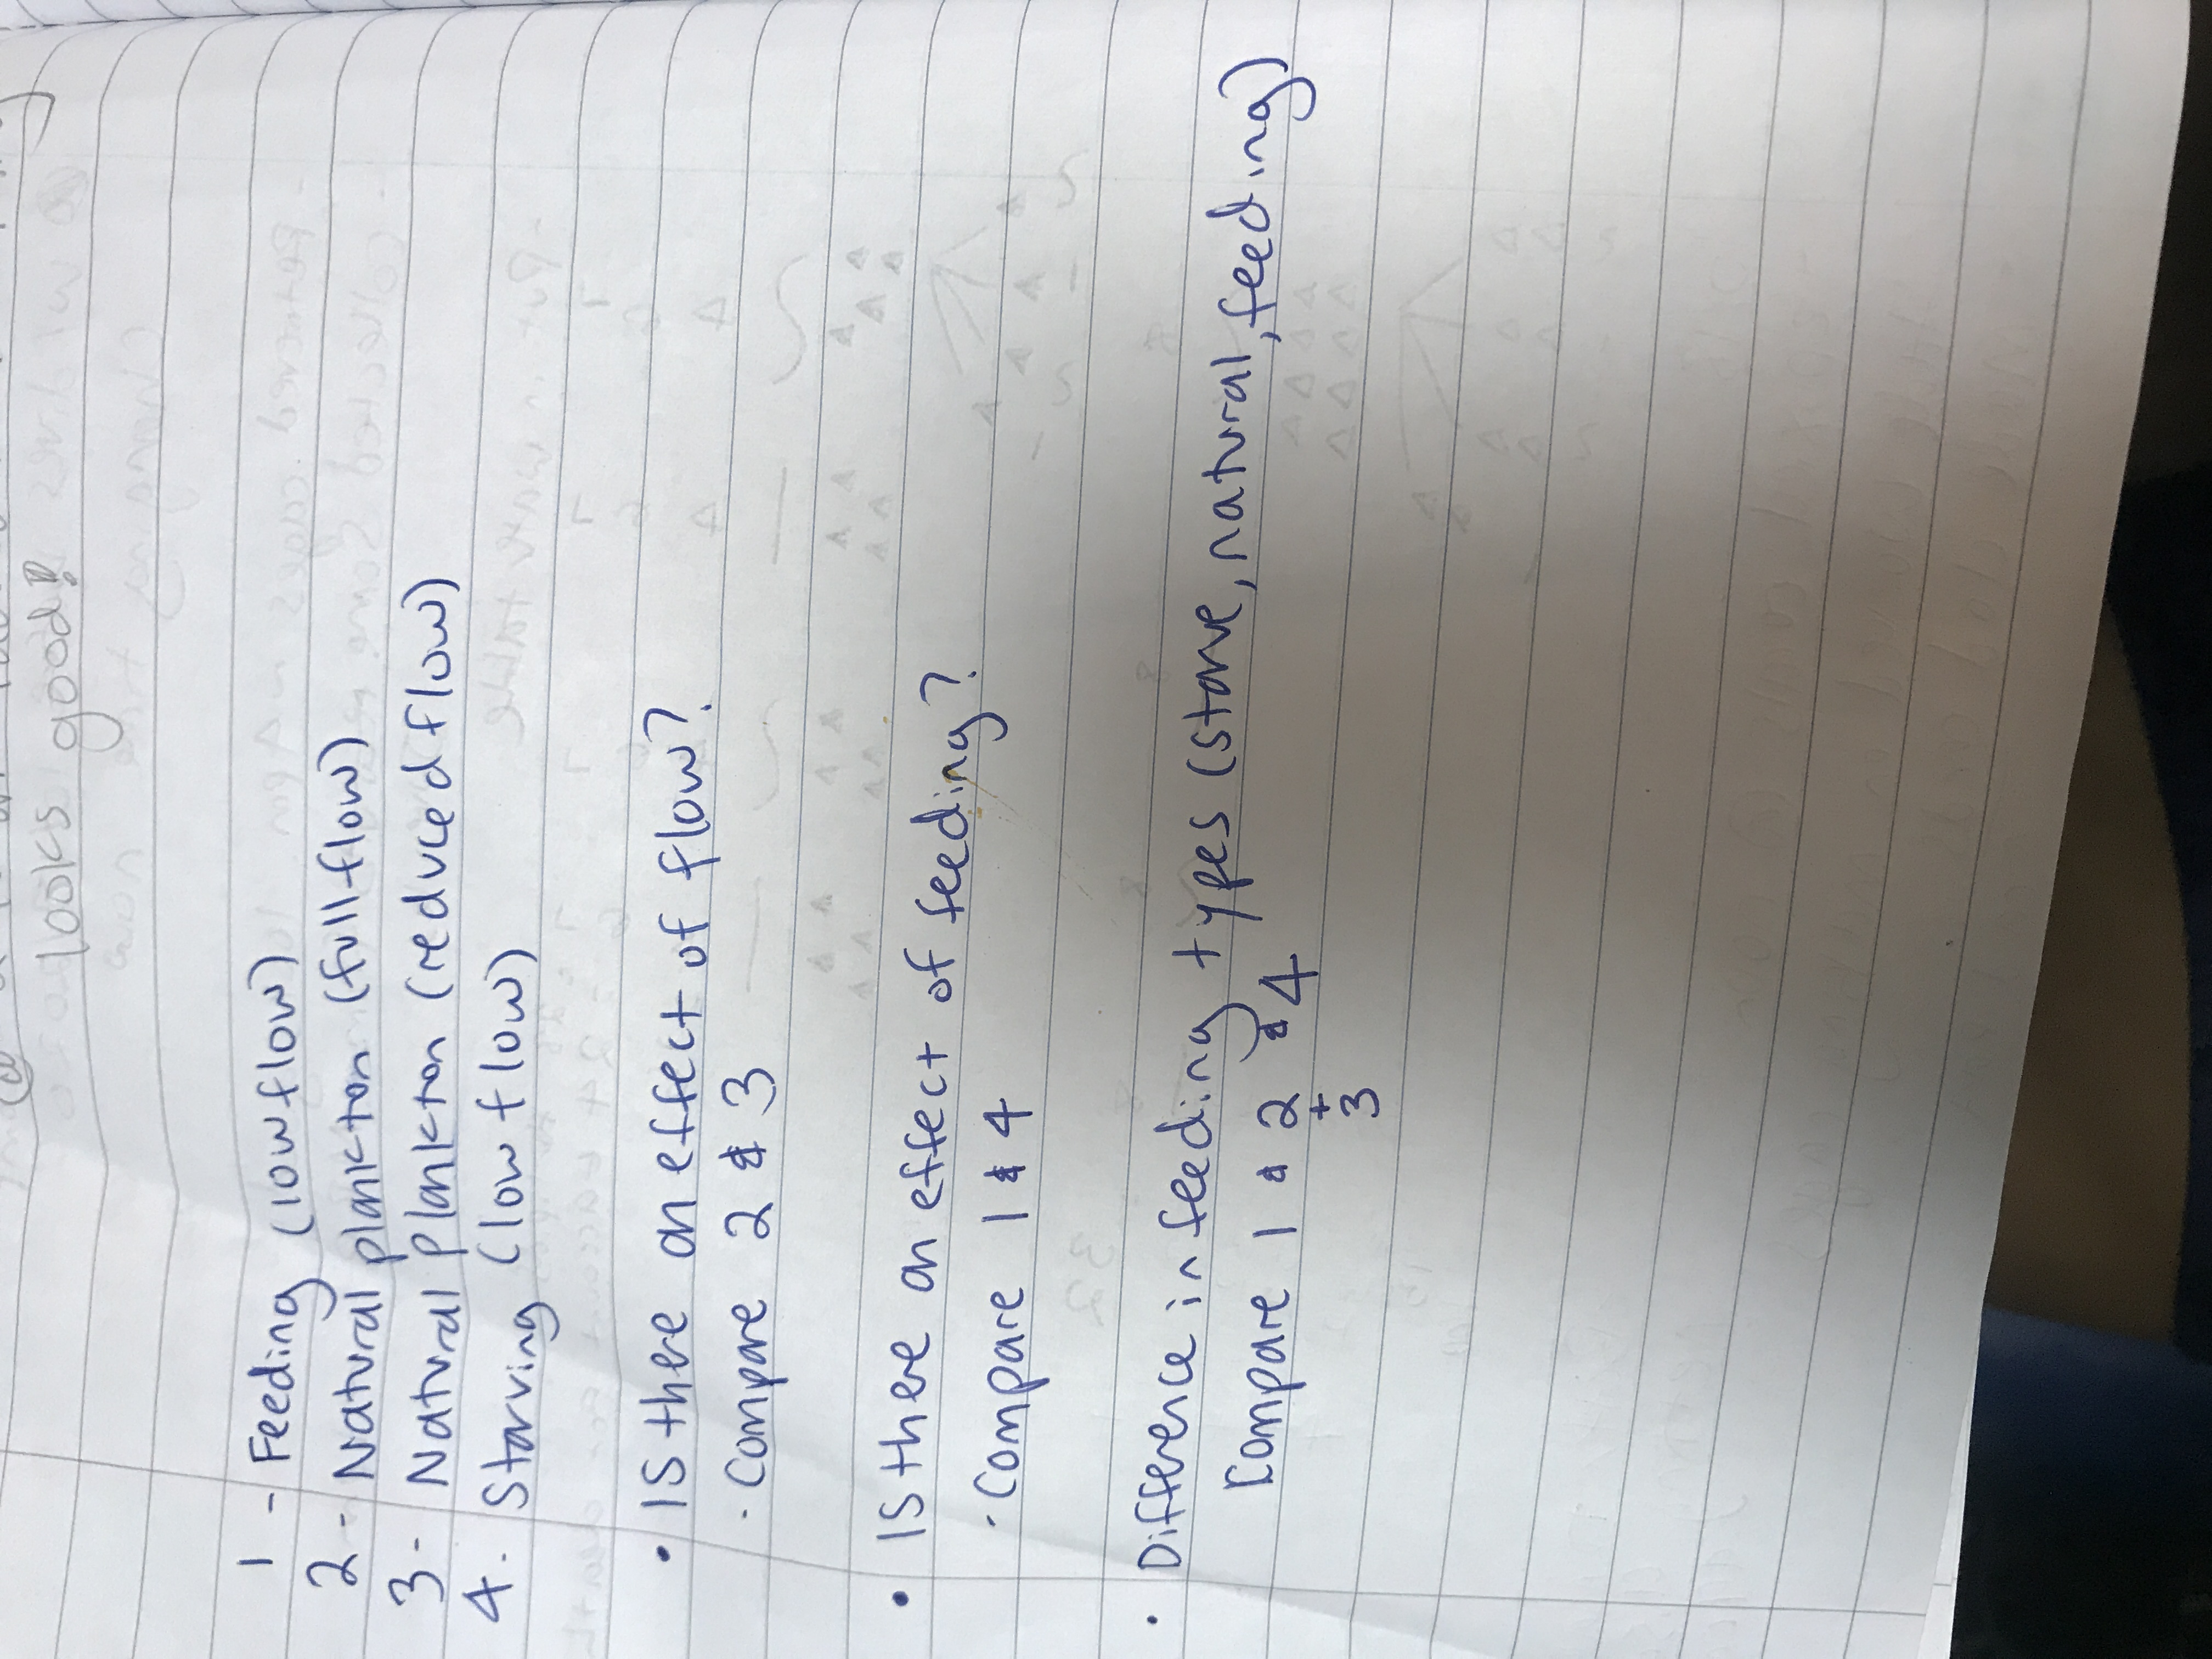 looks good!
1 - Feeding (low flow)
2 - Natural plankton (full flow)
3 - Natural plankton (reduced flow)
4. Starving (low flow)
• Is there an effect of flow?
- Compare 2 & 3
• Is there an effect of feeding?
- Compare 1 & 4
• Difference in feeding types (starve, natural, feeding)
Compare 1 & 2 & 4
+
3